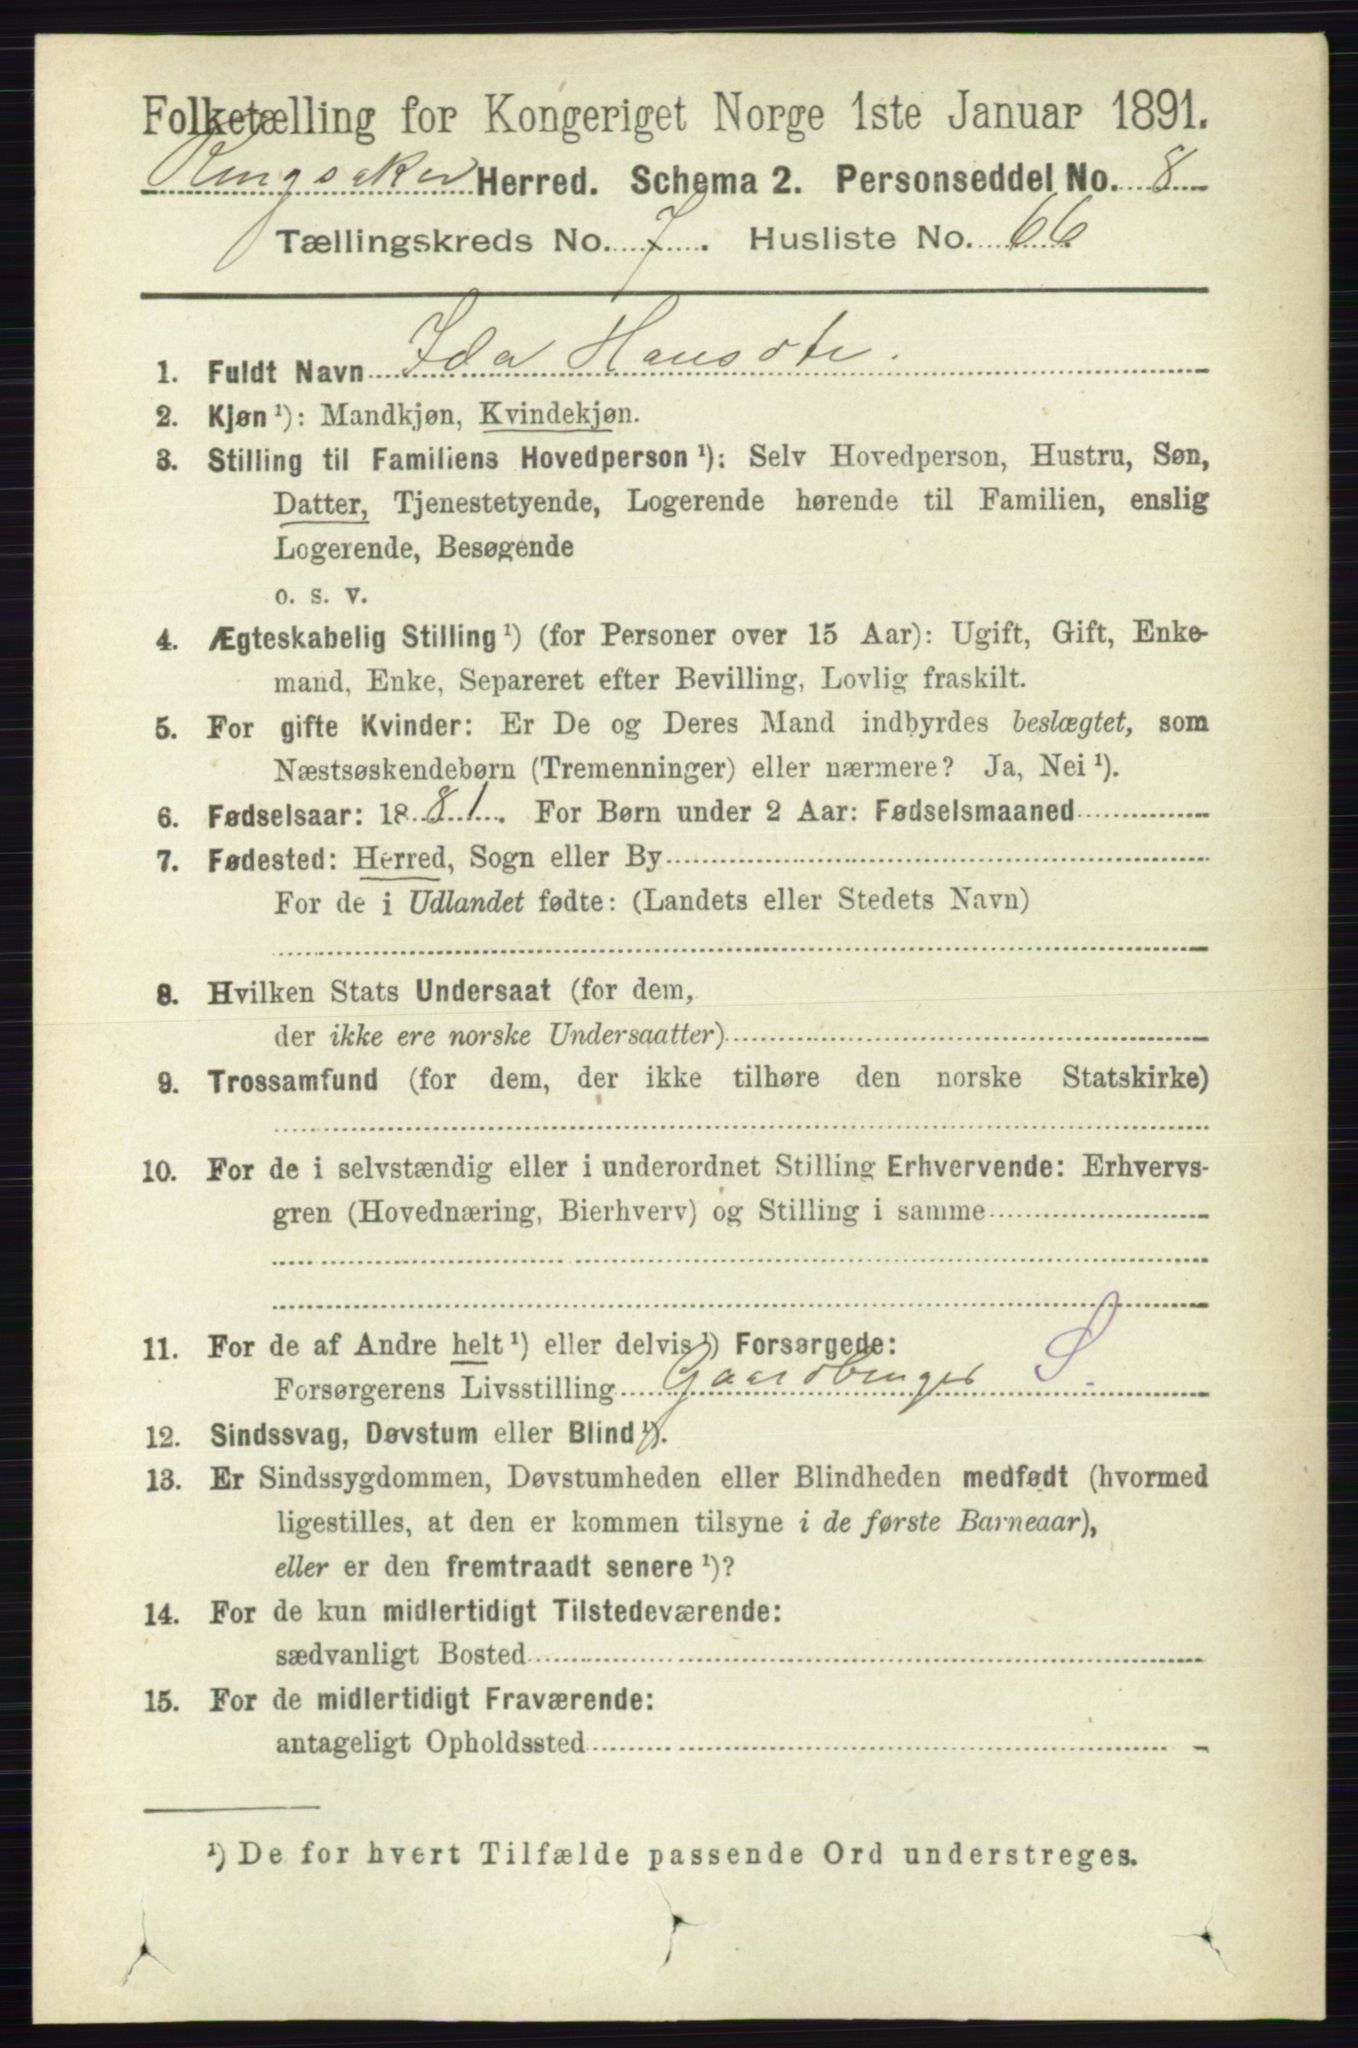 Folketælling for Kongeriget Norge 1ste Januar 1891.
Ringsaker Herred. Schema 2. Personseddel No. 8
Tællingskreds No. 7. Husliste No. 66
1. Fuldt Navn Ida Hansdtr.
2. Kjøn ¹): Mandkjøn, Kvindekjøn.
3. Stilling til Familiens Hovedperson ¹): Selv Hovedperson, Hustru, Søn,
Datter, Tjenestetyende, Logerende hørende til Familien, enslig
Logerende, Besøgende
o. s. v.
4. Ægteskabelig Stilling ¹) (for Personer over 15 Aar): Ugift, Gift, Enke-
mand, Enke, Separeret efter Bevilling, Lovlig fraskilt.
5. For gifte Kvinder: Er De og Deres Mand indbyrdes beslægtet, som
Næstsøskendebørn (Tremenninger) eller nærmere? Ja, Nei ¹).
6. Fødselsaar: 1881. For Børn under 2 Aar: Fødselsmaaned
7. Fødested: Herred, Sogn eller By
For de i Udlandet fødte: (Landets eller Stedets Navn)
8. Hvilken Stats Undersaat (for dem,
der ikke ere norske Undersaatter)
9. Trossamfund (for dem, der ikke tilhøre den norske Statskirke)
10. For de i selvstændig eller i underordnet Stilling Erhvervende: Erhvervs-
gren (Hovednæring, Bierhverv) og Stilling i samme
11. For de af Andre helt ¹) eller delvis ¹) Forsørgede:
Forsørgerens Livsstilling Gaardbruger S.
12. Sindssvag, Døvstum eller Blind ¹).
13. Er Sindssygdommen, Døvstumheden eller Blindheden medfødt (hvormed
ligestilles, at den er kommen tilsyne i de første Barneaar),
eller er den fremtraadt senere ¹)?
14. For de kun midlertidigt Tilstedeværende:
sædvanligt Bosted
15. For de midlertidigt Fraværende:
antageligt Opholdssted
¹) De for hvert Tilfælde passende Ord understreges.